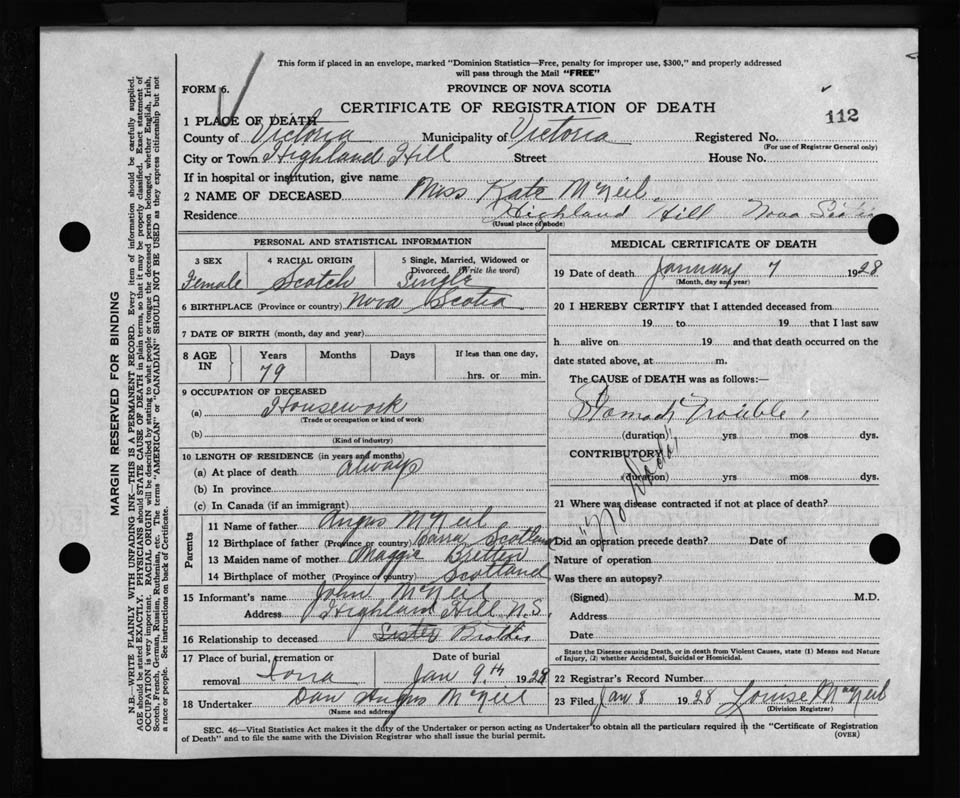 This form if placed in an envelope, marked "Dominion Statistics—Free, penalty for improper use, $300," and properly addressed
will pass through the Mail "FREE"
FORM 6.
PROVINCE OF NOVA SCOTIA
CERTIFICATE OF REGISTRATION OF DEATH
112
1 PLACE OF DEATH
County of Victoria Municipality of Victoria Registered No.
(For use of Registrar General only)
City or Town Highland Hill Street House No.
If in hospital or institution, give name
2 NAME OF DECEASED Miss Kate McNeil
Residence Highland Hill Nova Scotia
(Usual place of abode)
PERSONAL AND STATISTICAL INFORMATION
3 SEX 4 RACIAL ORIGIN 5 Single, Married, Widowed or
Divorced. (Write the word)
Female Scotch Single
6 BIRTHPLACE (Province or country) Nova Scotia
7 DATE OF BIRTH (month, day and year)
8 AGE IN Years Months Days If less than one day,
79 hrs. or min.
9 OCCUPATION OF DECEASED
(a) Housework
(Trade or occupation or kind of work)
(b)
(Kind of industry)
10 LENGTH OF RESIDENCE (in years and months)
(a) At place of death always
(b) In province
(c) In Canada (if an immigrant)
Parents
11 Name of father Angus McNeil
12 Birthplace of father (Province or country) Barra Scotland
13 Maiden name of mother Maggie Britten
14 Birthplace of mother (Province or country) Scotland
15 Informant's name John McNeil
Address Highland Hill N.S.
16 Relationship to deceased Sister Brother
17 Place of burial, cremation or Date of burial
removal Iona Jan 9th 1928
18 Undertaker Dan Angus McNeil
(Name and address)
MEDICAL CERTIFICATE OF DEATH
19 Date of death January 7 1928
(Month, day and year)
20 I HEREBY CERTIFY that I attended deceased from
19 to 19 that I last saw
h alive on 19 and that death occurred on the
date stated above, at m.
The CAUSE of DEATH was as follows:—
Stomach Trouble
(duration) yrs mos dys.
CONTRIBUTORY
(duration) yrs mos dys.
"No Doctor"
21 Where was disease contracted if not at place of death?
Did an operation precede death? Date of
Nature of operation
Was there an autopsy?
(Signed) M.D.
Address
Date
State the Disease causing Death, or in death from Violent Causes, state (1) Means and Nature
of Injury, (2) whether Accidental, Suicidal or Homicidal.
22 Registrar's Record Number
23 Filed Jan 8 1928 Louise McNeil
(Division Registrar)
SEC. 46—Vital Statistics Act makes it the duty of the Undertaker or person acting as Undertaker to obtain all the particulars required in the "Certificate of Registration
of Death" and to file the same with the Division Registrar who shall issue the burial permit.
(OVER)
MARGIN RESERVED FOR BINDING
N.B.—WRITE PLAINLY WITH UNFADING INK—THIS IS A PERMANENT RECORD. Every item of information should be carefully supplied.
AGE should be stated EXACTLY. PHYSICIANS should STATE CAUSE OF DEATH in plain terms, so that it may be properly classified. Exact statement of
OCCUPATION is very important. RACIAL ORIGIN will be described by stating to what people or tongue the deceased person belonged, whether English, Irish,
Scotch, French, German, Russian, Ruthenian, etc. The terms "AMERICAN" or "CANADIAN" SHOULD NOT BE USED as they express citizenship but not
a race or people. See instructions on back of Certificate.